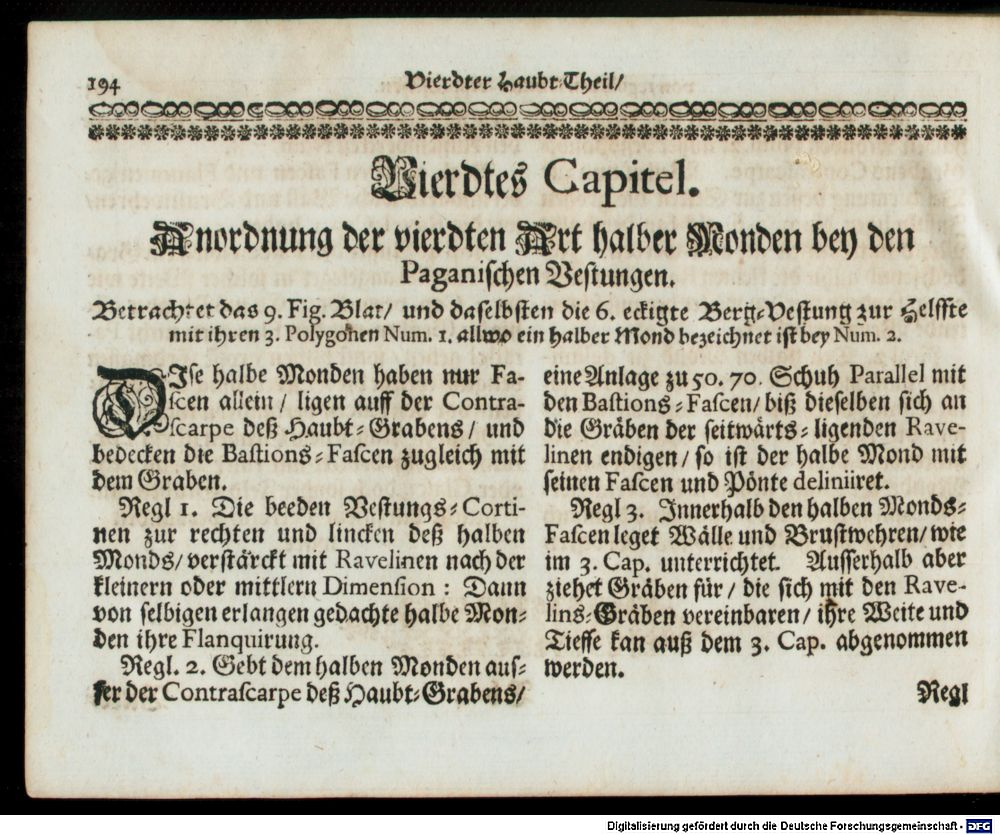 194
Vierdter Haubt-Theil/
Vierdtes Capitel.
Anordnung der vierdten Art halber Monden bey den
Paganischen Vestungen.
Betrachtet das 9. Fig. Blat/ und daselbsten die 6. eckigte Berg-Vestung zur Helffte
mit ihren 3. Polygonen Num. 1. allwo ein halber Mond bezeichnet ist bey Num. 2.
DIse halbe Monden haben nur Fa-
scen allein / ligen auff der Contra-
scarpe deß Haubt-Grabens / und
bedecken die Bastions-Fascen zugleich mit
dem Graben.
Regl 1. Die beeden Vestungs-Corti-
nen zur rechten und lincken deß halben
Monds/ verstärckt mit Ravelinen nach der
kleinern oder mittlern Dimension : Dann
von selbigen erlangen gedachte halbe Mon-
den ihre Flanquirung.
Regl. 2. Gebt dem halben Monden aus-
ser der Contrascarpe deß Haubt-Grabens/
eine Anlage zu 50. 70. Schuh Parallel mit
den Bastions-Fascen/ biß dieselben sich an
die Gräben der seitwärts-ligenden Rave-
linen endigen / so ist der halbe Mond mit
seinen Fascen und Pönte deliniiret.
Regl 3. Innerhalb den halben Monds-
Fascen leget Wälle und Brustwehren/ wie
im 3. Cap. unterrichtet. Ausserhalb aber
ziehet Gräben für / die sich mit den Rave-
lins-Gräben vereinbaren / ihre Weite und
Tieffe kan auß dem 3. Cap. abgenommen
werden.
Regl
Digitalisierung gefördert durch die Deutsche Forschungsgemeinschaft - DFG